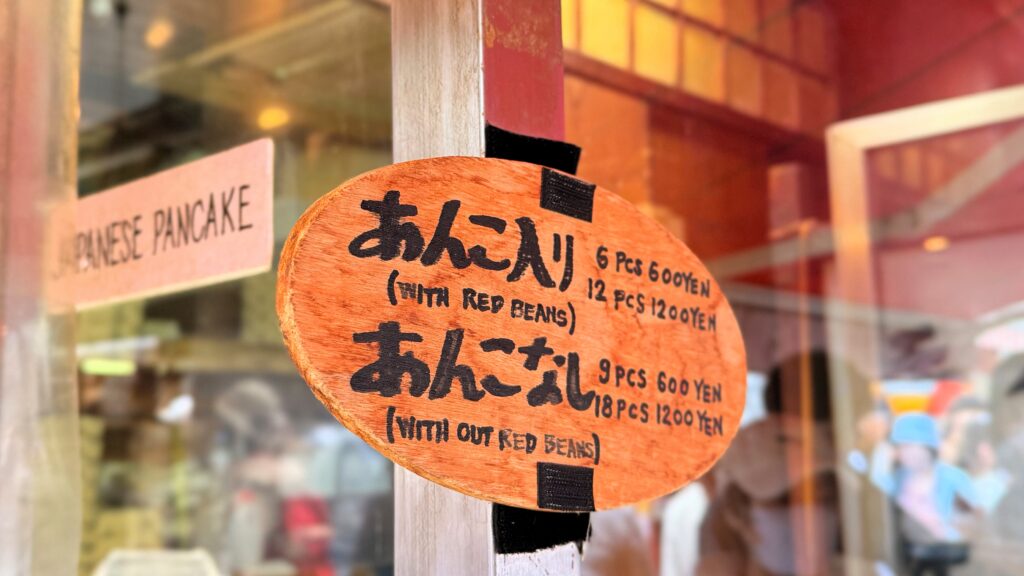 JAPANESE PANCAKE
あんこ入り
6 PCS 600YEN
(WITH RED BEANS)
12 PCS 1200YEN
あんこなし
9 PCS 600 YEN
18 PCS 1200 YEN
(WITH OUT RED BEANS)